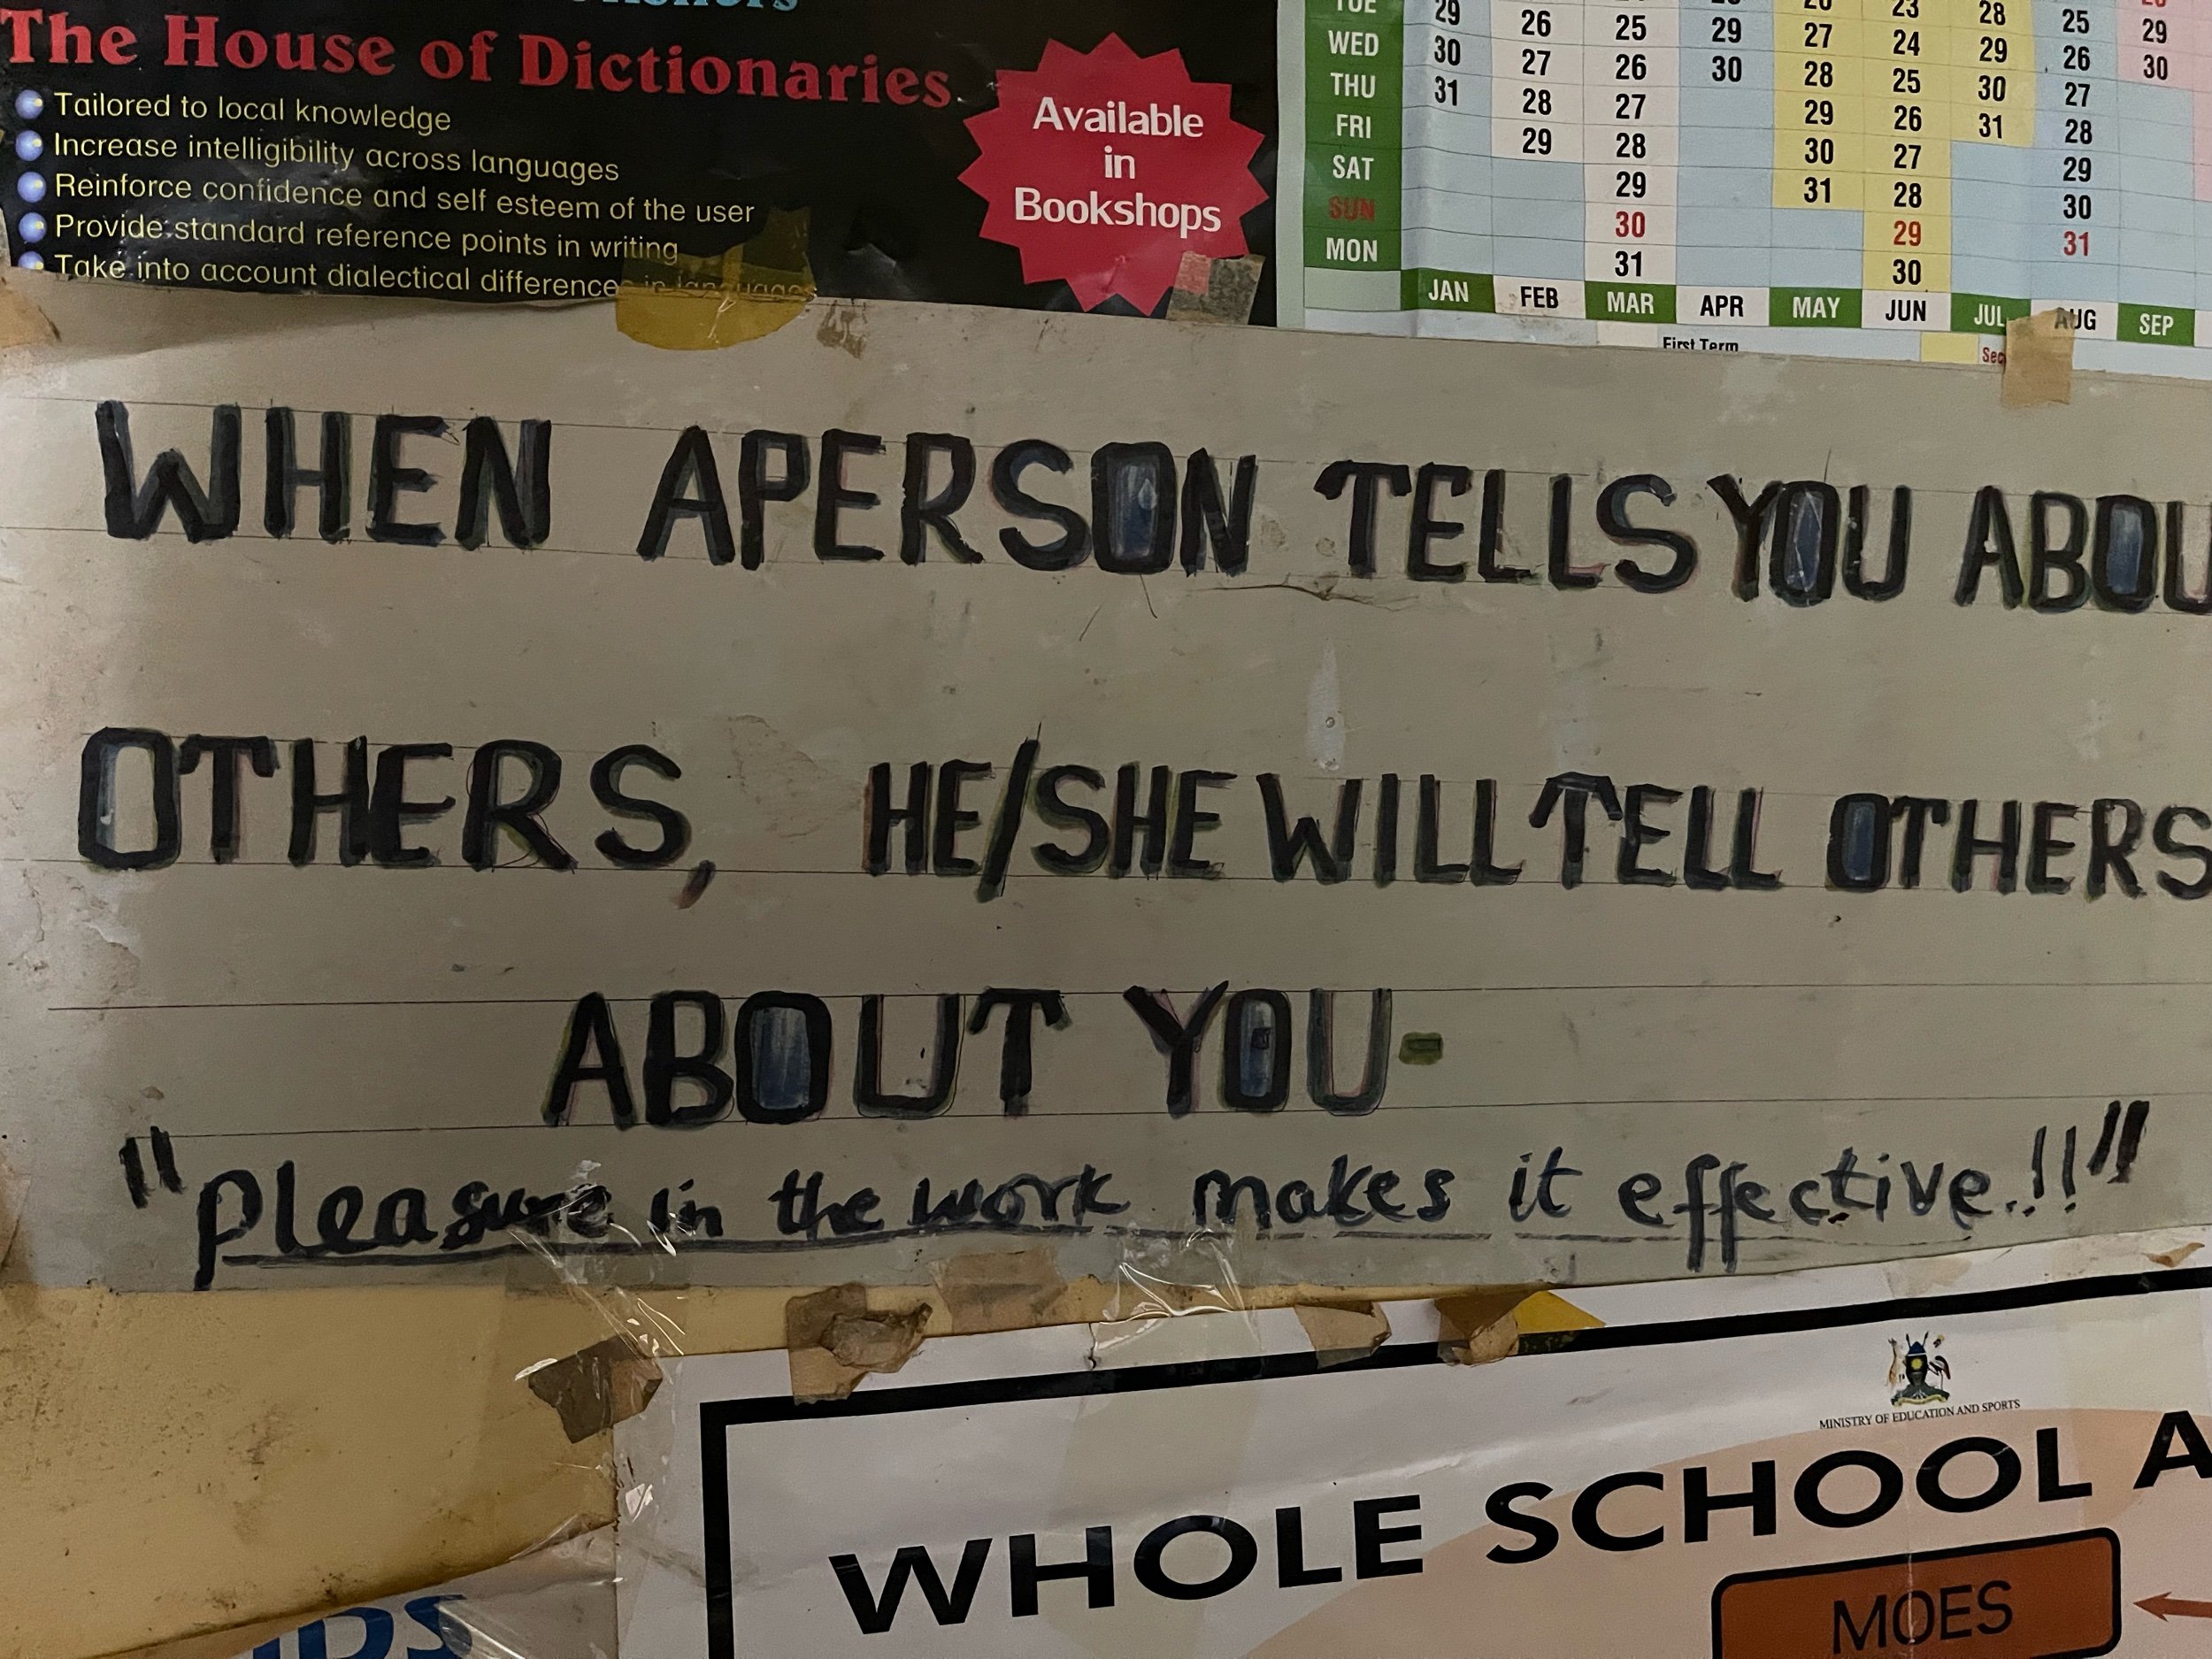 The House of Dictionaries
Tailored to local knowledge
Increase intelligibility across languages
Reinforce confidence and self esteem of the user
Provide standard reference points in writing
Take into account dialectical differences in languages
Available
in
Bookshops
TUE 29 26 25 29 27 24 29 26 30
WED 30 27 26 30 28 25 30 27
THU 31 28 27 29 26 31 28
FRI 29 28 30 27 29
SAT 29 31 28 30
SUN 30 29 31
MON 31 30
JAN FEB MAR APR MAY JUN JUL AUG SEP
First Term
WHEN APERSON TELLS YOU ABOU
OTHERS, HE/SHE WILL TELL OTHERS
ABOUT YOU-
"Pleasure in the work makes it effective.!!"
MINISTRY OF EDUCATION AND SPORTS
WHOLE SCHOOL A
MOES